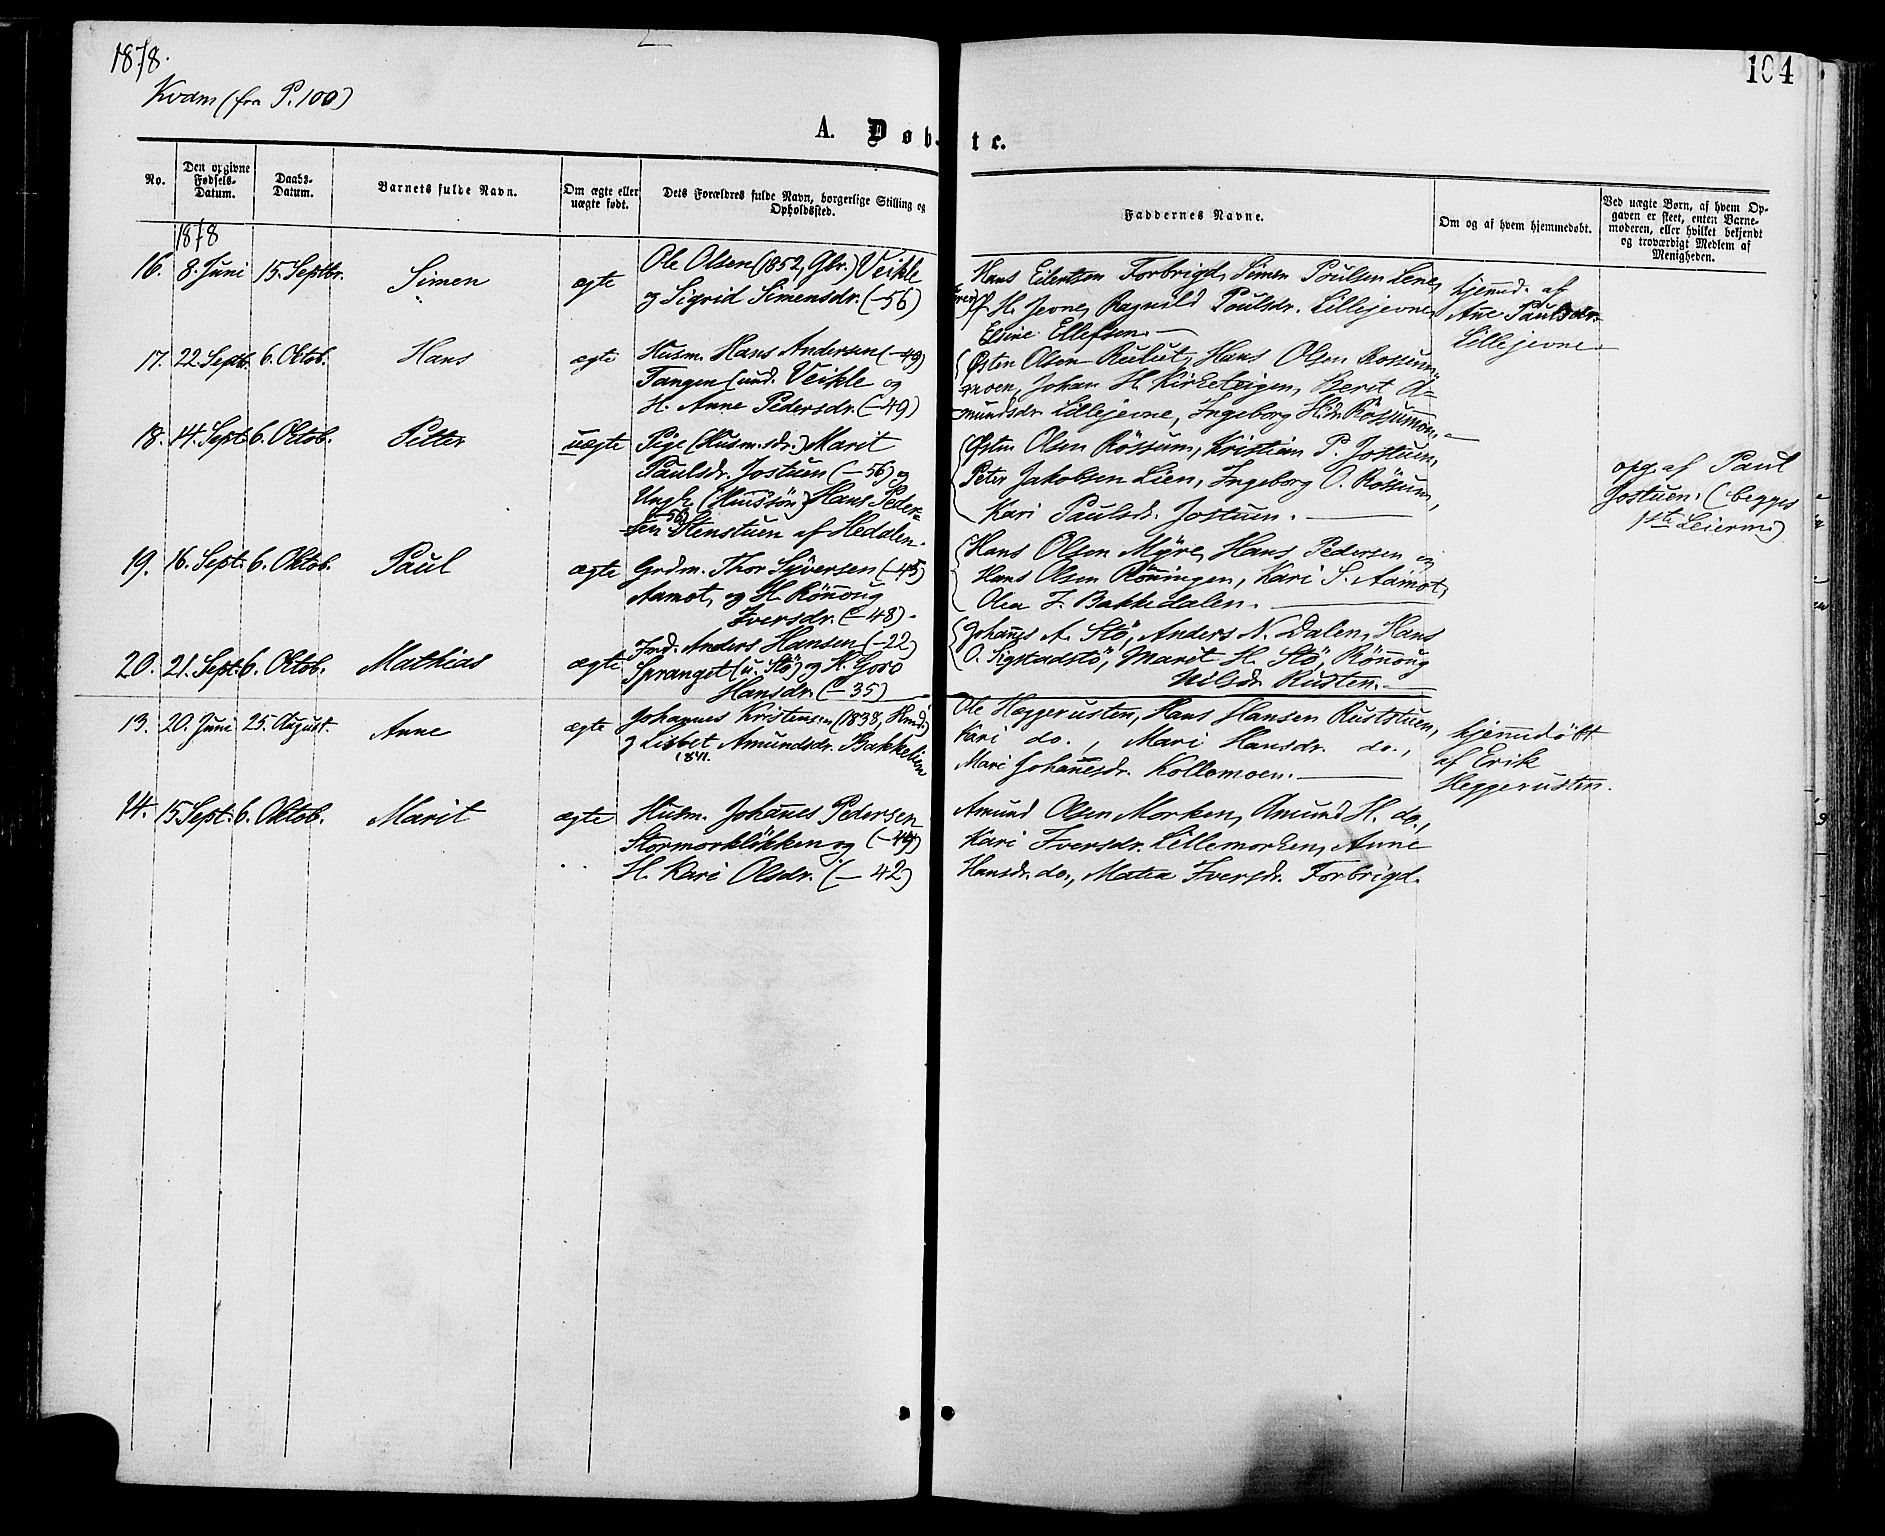 1878.
104
Kvam (fra P. 100)
A. Døbte.
No.
Den opgivne Fødsels-Datum.
Daabs-Datum.
Barnets fulde Navn.
Om ægte eller uægte født.
Dets Forældres fulde Navn, borgerlige Stilling og Opholdssted.
Faddernes Navne.
Om og af hvem hjemmedøbt.
Ved uægte Børn, af hvem Opgaven er skeet, enten Barnemoderen, eller hvilket beljendt og troværdigt Medlem af Menigheden.
1878
16. 8. Juni 15. Septbr. Simen ægte
Ole Olsen (1852, Gbr.) Veikle
og Sigrid Simensdr. (-56)
Hans Eilertsen Forbrigd, Simen Poulsen Lene,
H. Jevne, Ragnild Poulsdr. Lillejevne,
Elsine Ellefsen.
hjemd. af
Anne Paulsdr.
Lillejevne.
17. 22. Septb. 6. Oktob. Hans ægte
Husm. Hans Andersen (-49)
Tangen (und. Veikle og
H. Anne Pedersdr. (-49)
Østen Olsen Rulut, Hans Olsen Rossum-
moen, Johan H. Kirketeigen, Berit A-
mundsdr. Lillejevne, Ingeborg H.dr. Røssummoen.
18. 14. Sept. 6. Oktob. Petter uægte
Pige (Husm.sdr.) Marit
Paulsdr. Jostuen (-56) og
Ungk. (Huussøn) Hans Peder-
(-56)
sen Stenstuen af Hedalen.
Østen Olsen Røssum, Kristian P. Jostuen,
Peter Jakobsen Lien, Ingeborg O. Røssum,
Kari Paulsdr. Jostuen.
opg. af Paul
Jostuen. (begges
1ste Leierm.)
19. 16. Sept. 6. Oktob. Paul ægte
Grdm. Thor Syversen (-45)
Aamot, og H. Rønnoug
Iversdr. (-48).
Hans Olsen Myre, Hans Pedersen og
Hans Olsen Rønningen, Kari S. Aamot,
Olea J. Bakkedalen.
20. 21. Sept. 6. Oktob. Mathias ægte
Ind. Anders Hansen (-22)
Spranget (u. Stø) og H. Goro
Hansdr. (-35)
Johannes A. Stø, Anders N. Dalen, Hans
O. Sigstadstø, Marit H. Stø, Rønnoug
Nilsdr. Rusten.
13. 20. Juni 25. August. Anne ægte
Johannes Kristensen (1838, Hmd.)
og Lisbet Amundsdr. Bakkelien
1841.
Ole Heggerusten, Hans Hansen Ruststuen,
Kari do., Mari Hansdr. do.,
Mari Johannesdr. Kollomoen.
hjemmdøbt
af Erik
Heggerusten.
14. 15 Sept. 6. Oktob. Marit ægte
Husm. Johannes Pedersen
Stormorkløkken og (-49)
H. Kari Olsdr. (-42)
Amund Olsen Morken, Amund H. do.,
Kari Iversdr. Lillemorken, Anne
Hansdr. do., Matea Iversdr. Forbrigd.